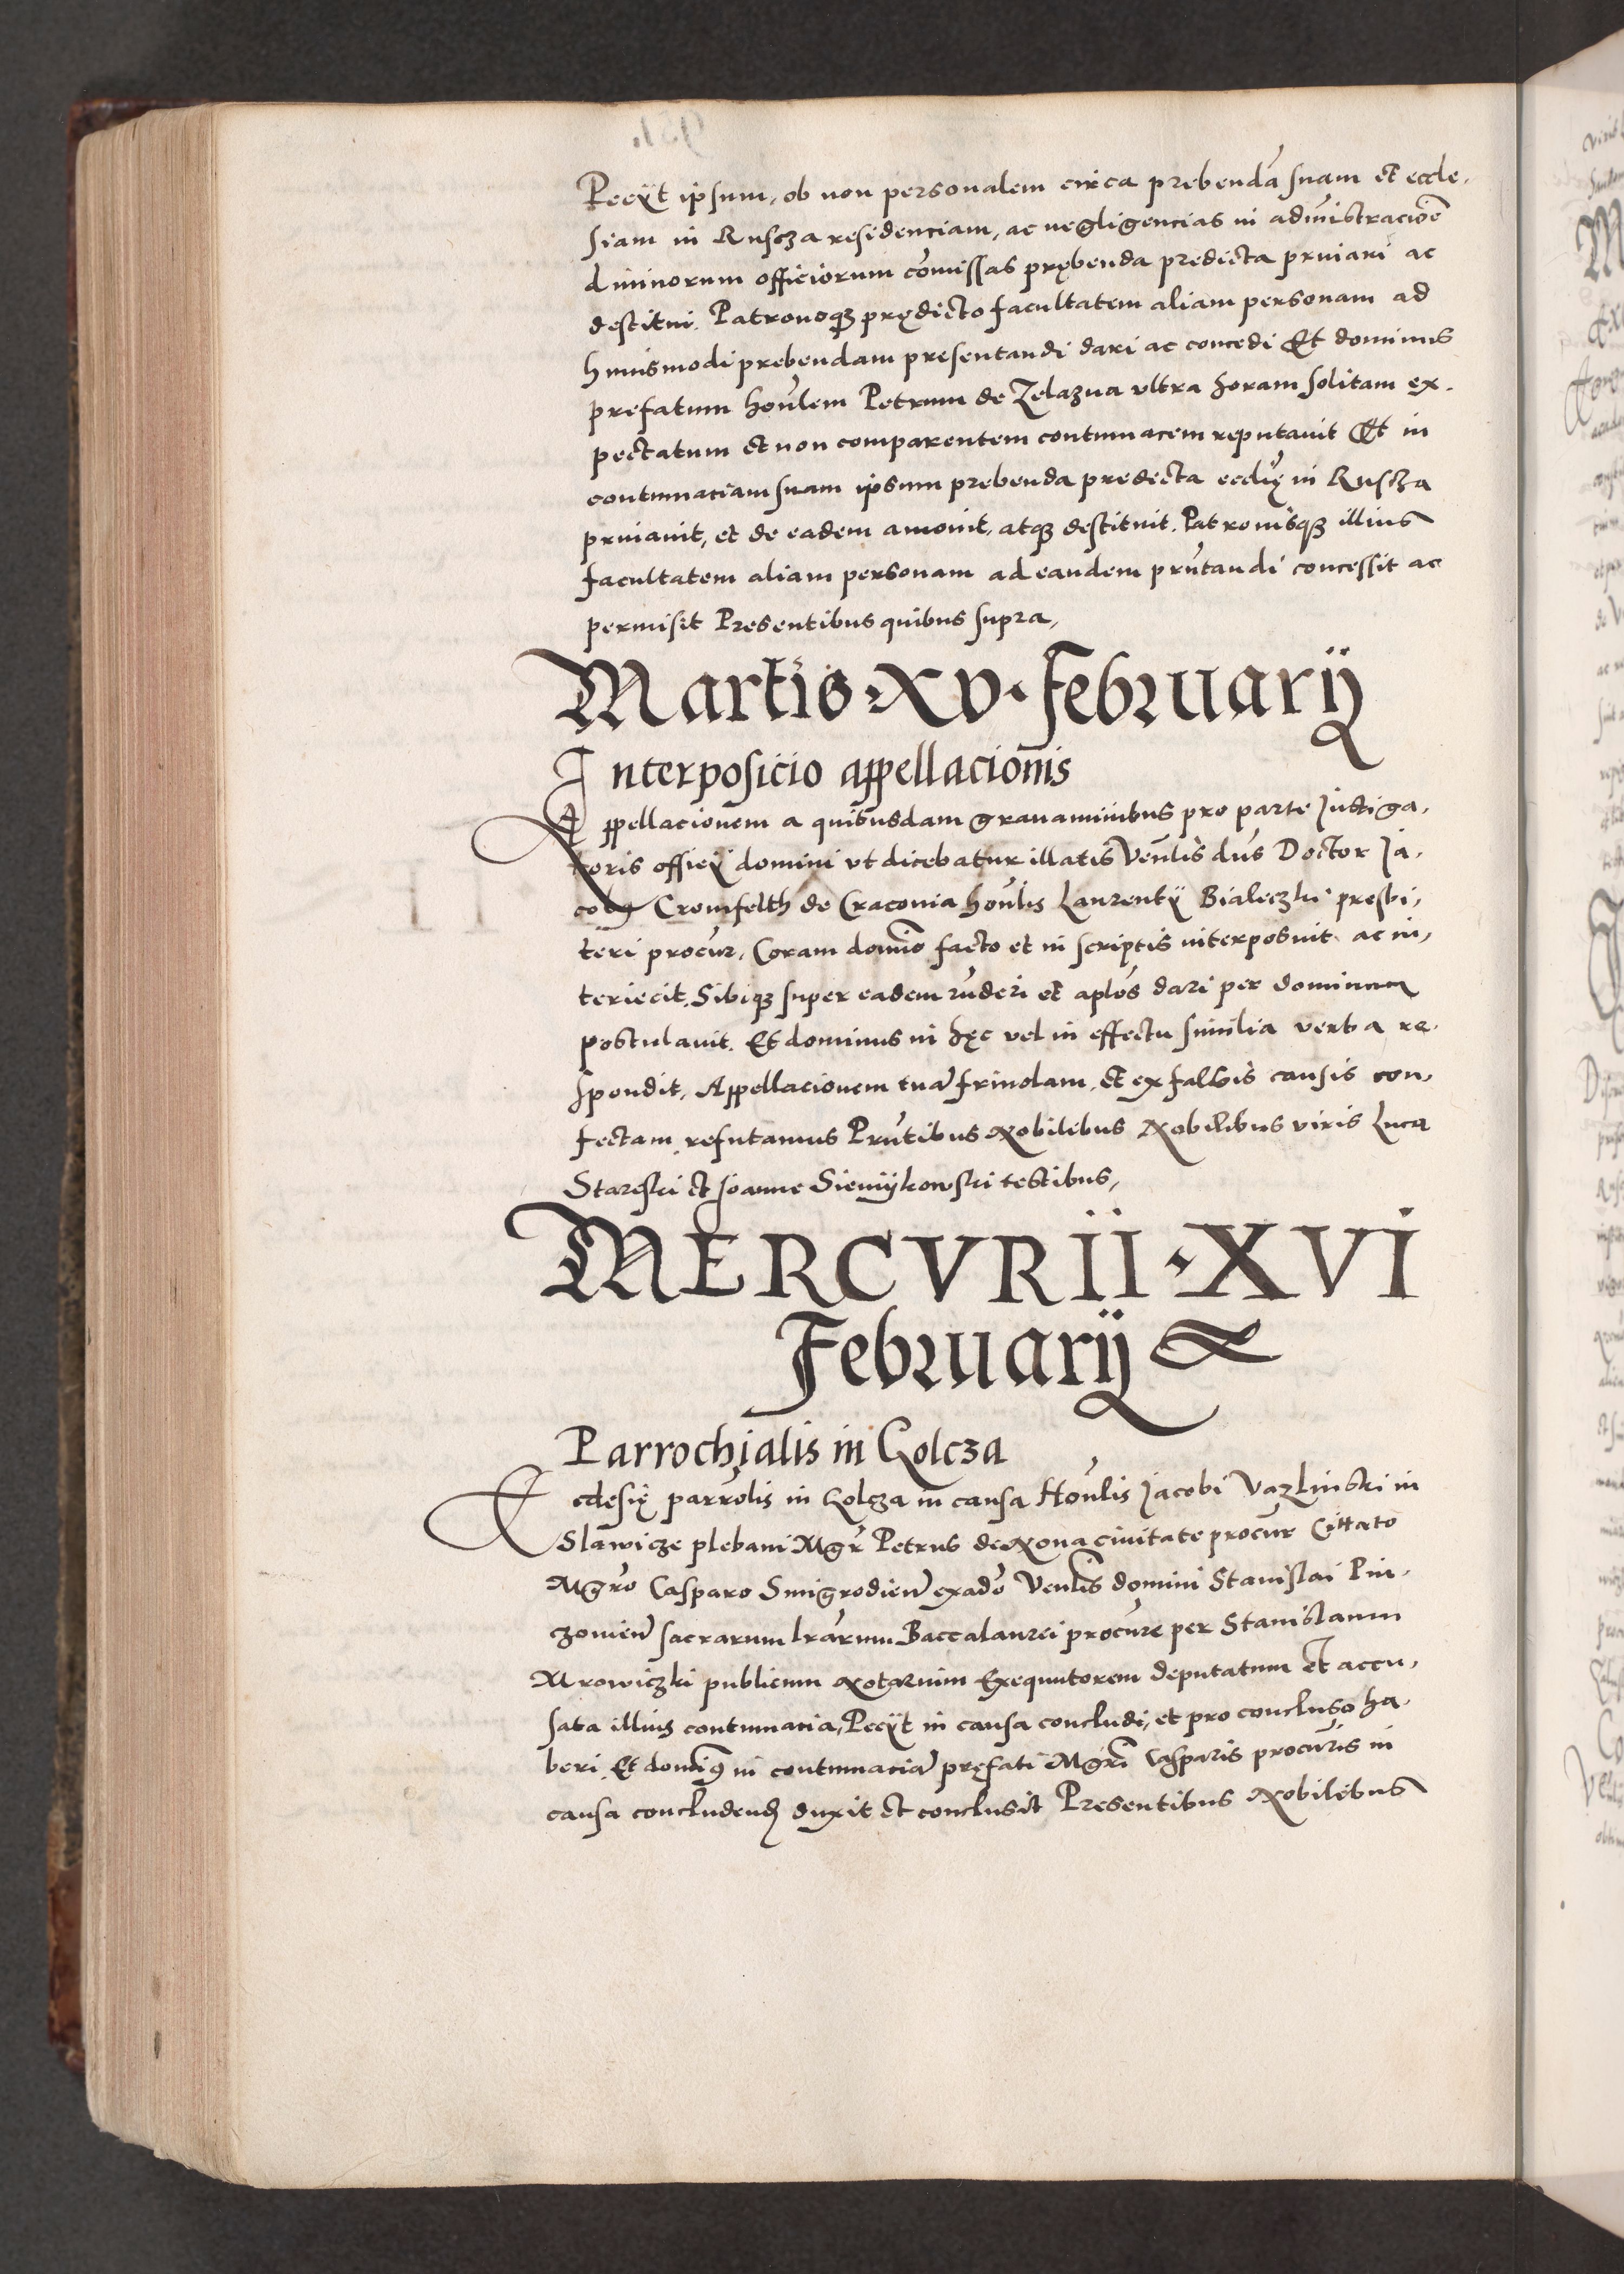 Peciit ipsum, ob non personalem circa prebendã suam et eccle,
siam in Ruscza residenciam, ac negligencias in administracioẽ
diuinorum officiorum comissas prębenda predicta priuari ac
destitui. Patronoqȝ prędicto facultatem aliam personam ad
huiusmodi prebendam presentandi dari ac concedi Et dominus
prefatum honlem Petrum de Zelazna ultra horam solitam ex,
pectatum et non comparentem contumacem reputauit Et in
contumaciam suam ipsum prebenda predicta ecclię in Ruscza
priuauit, et de eadem amouit, atqȝ destituit. Patronisqȝ illius
facultatem aliam personam ad eandem prñtandi concessit ac
permisit Presentibus quibus supra,
Martis · XV · Februarij
Interposicio appellacionis
Appellacionem a quibusdam grauaminibus pro parte Instiga,
toris officij domini ut dicebatur illatis Venlis dns Doctor Ja,
cobꝰ Cromfelth de Craconia honlis Laurentij Bialeczki presbi,
teri procur, Coram domino facto et in scriptis interposuit ac in,
teriecit. Sibiqȝ super eadem rñderi et aplos dari per dominum
postulauit. Et dominus in hęc vel in effectu similia verba re,
spondit, Appellacionem tuã friuolam, et ex falsis causis con,
fectam refutamus Prñtibus Nobilibus Nobilibus viris Luca
Starski et Joanne Sienijkowski testibus,
MERCVRII · XVI
Februarij
Parrochialis in Golcza
Ecclesię parrolis in Golcza in causa Honlis Jacobi Vazlinski in
Slawicze plebani Mgr Petrus de Noua ciuitate procur Cittato
Mgro Casparo Smigrodien exaduo Venlis domini Stanislai Pin,
czouien sacrarum lrarum Baccalaurei procure per Stanislaum
Mrowiczki publicum Notarium Exequutorem deputatum et accu,
sata illius contumacia, Peciit in causa concludi, et pro concluso ha,
beri. Et dominꝰ in contumaciã pręfati Mgri Casparis procuris in
causa concludend duxit et conclusit Presentibus Nobilibus